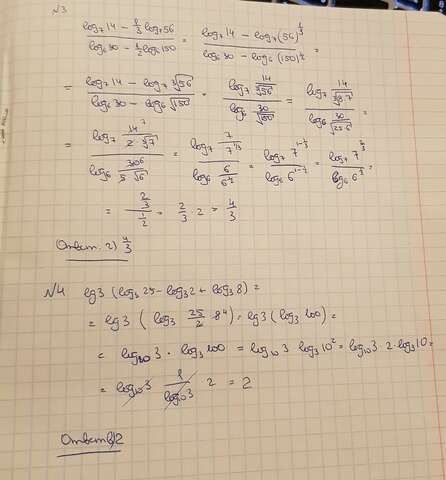 √3
(log₇14 - 1/3 log₇56) / (log₆30 - 1/2 log₆150) = (log₇14 - log₇(56)^(1/3)) / (log₆30 - log₆(150)^(1/2)) =
= (log₇14 - log₇∛56) / (log₆30 - log₆√150) = (log₇ 14/∛56) / (log₆ 30/√150) = (log₇ 14/(2∛7)) / (log₆ 30/√(25·6)) =
= (log₇ 14⁷/(2∛7)) / (log₆ 30⁶/(5√6)) = (log₇ 7/7^(1/3)) / (log₆ 6/6^(1/2)) = (log₇ 7^(1-1/3)) / (log₆ 6^(1-1/2)) = (log₇ 7^(2/3)) / (log₆ 6^(1/2)) =
= (2/3) / (1/2) = 2/3 · 2 = 4/3
Ответ: 2) 4/3
√4 lg3 (log₃25 - log₃2 + log₃8) =
= lg3 (log₃ 25/2 · 8⁴) = lg3 (log₃ 100) =
= log₁₀3 · log₃100 = log₁₀3 · log₃10² = log₁₀3 · 2 · log₃10 =
= log₁₀3 · 1/log₁₀3 · 2 = 2
Ответ: 2